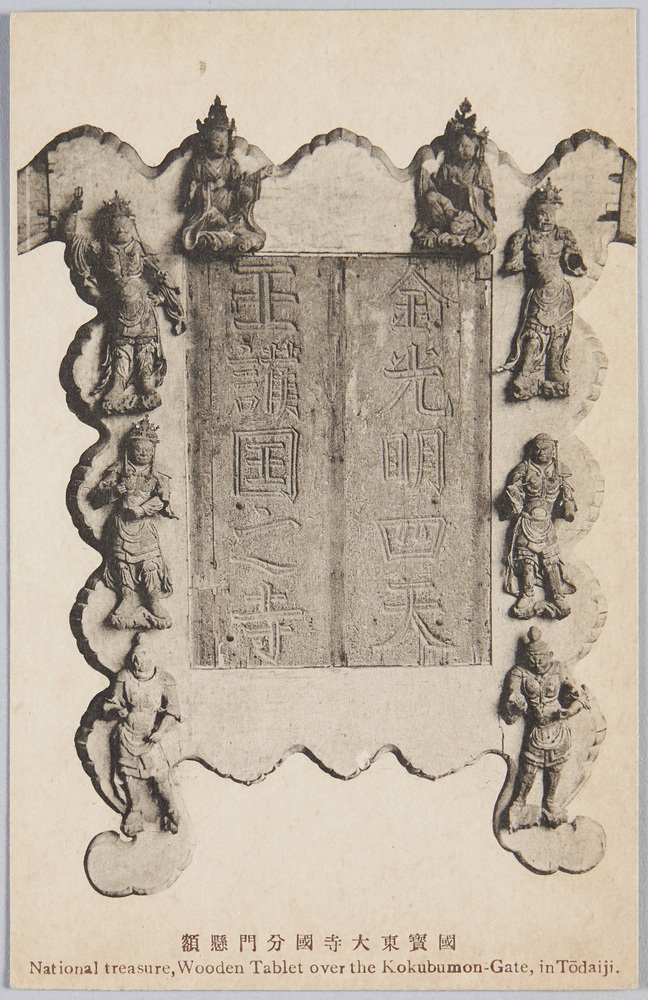 金光明四天
王護国之寺
國寳東大寺國分門懸額
National treasure, Wooden Tablet over the Kokubumon-Gate, in Tōdaiji.